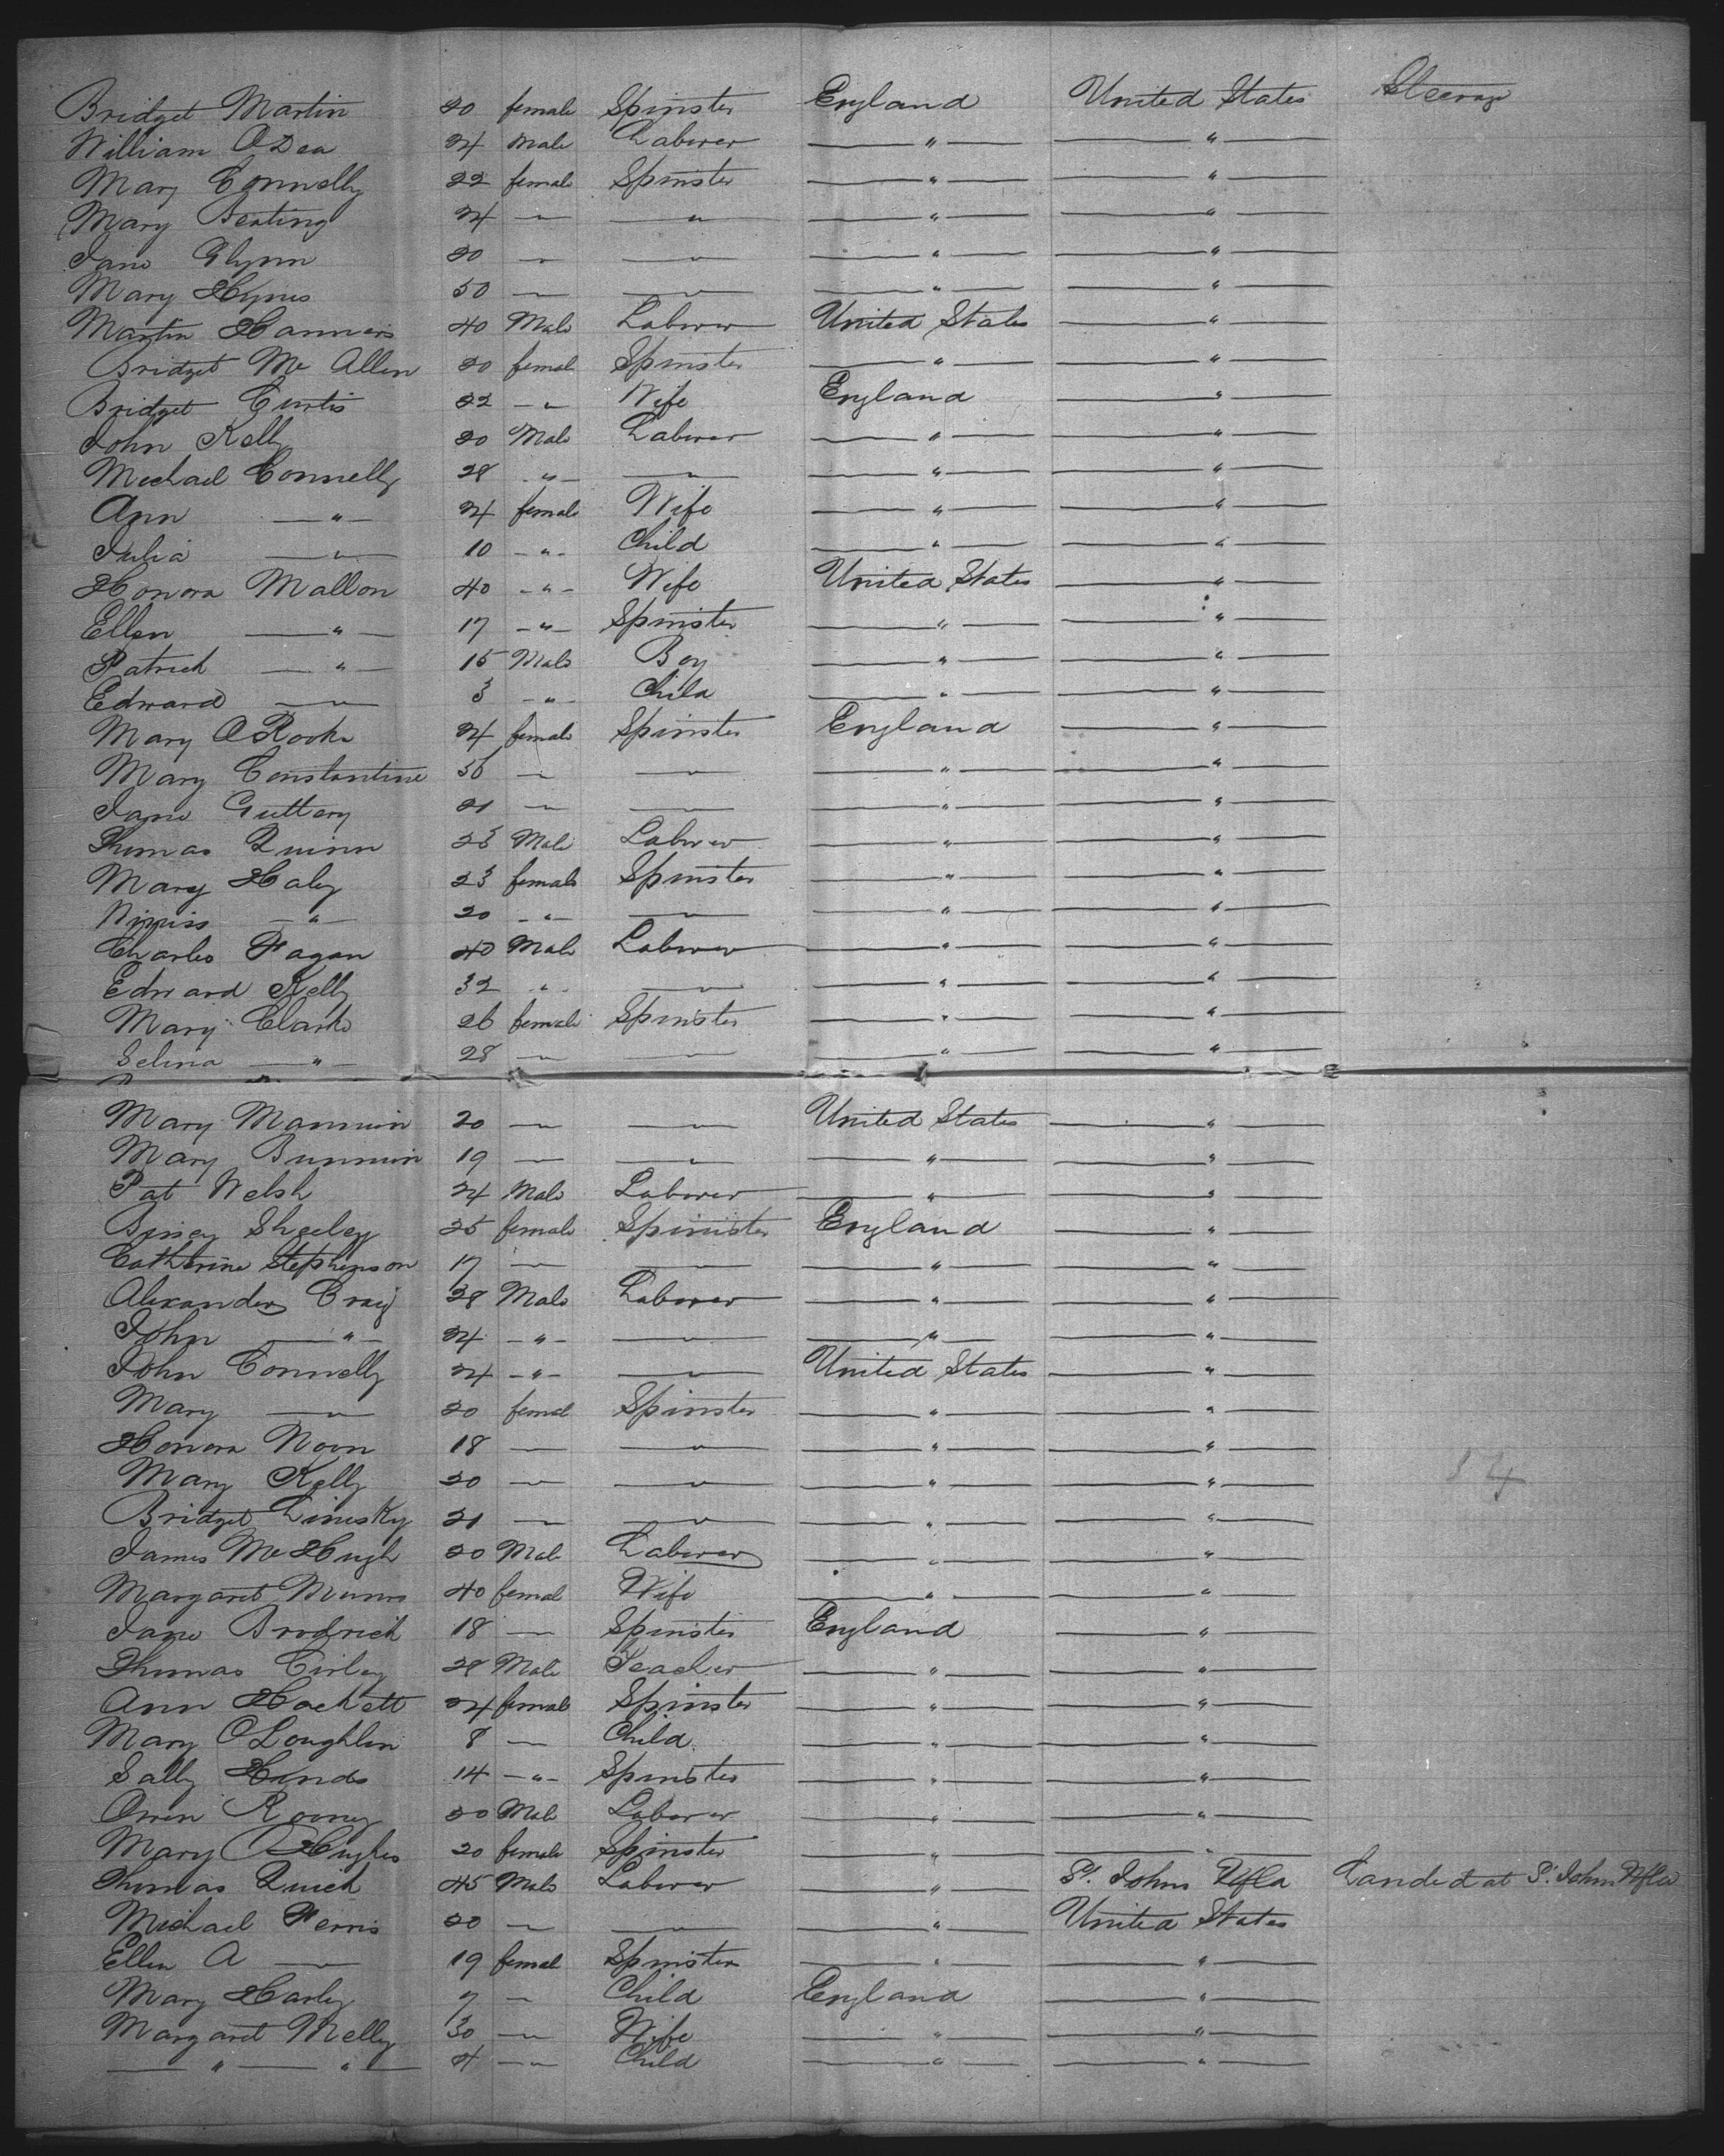 Bridget Martin 20 female Spinster England United States Steerage
William ODea 24 Male Laborer — " — — " —
Mary Connelly 22 female Spinster — " — — " —
Mary Beating 24 — " — — " — — " — — " —
Jane Glynn 20 — " — — " — — " — — " —
Mary Hynes 50 — " — — " — — " — — " —
Martin 40 Male Laborer United States — " —
Bridget Mc Allen 20 female Spinster — " — — " —
Bridget Curtis 22 — " — Wife England — " —
John Kelly 20 Male Laborer — " — — " —
Michael Connelly 28 — " — — " — — " — — " —
Ann — " — 24 female Wife — " — — " —
Julia — " — 10 — " — Child — " — — " —
Honora Mallon 40 — " — Wife United States — " —
Ellen — " — 17 — " — Spinster — " — — " —
Patrick — " — 15 Male Boy — " — — " —
Edward — " — 3 — " — Child — " — — " —
Mary ORorke 24 female Spinster England — " —
Mary Constantine 56 — " — — " — — " — — " —
Jane Guttery 21 — " — — " — — " — — " —
Thomas Quinn 23 Male Laborer — " — — " —
Mary Haley 23 female Spinster — " — — " —
— " — 20 — " — — " — — " — — " —
Charles Fagan 40 Male Laborer — " — — " —
Edward Kelly 32 — " — — " — — " — — " —
Mary Clarke 26 female Spinster — " — — " —
Selina — " — 28 — " — — " — — " — — " —
Mary Mannion 20 — " — — " — United States — " —
Mary Bunnion 19 — " — — " — — " — — " —
Pat Welsh 24 Male Laborer — " — — " —
Sheeley 25 female Spinster England — " —
Catherine Stephenson 17 — " — — " — — " — — " —
Alexander Craig 38 Male Laborer — " — — " —
John — " — 24 — " — — " — — " — — " —
John Connelly 24 — " — — " — United States — " —
Mary — " — 20 femal Spinster — " — — " —
Honora Noon 18 — " — — " — — " — — " —
Mary Kelly 20 — " — — " — — " — — " —
Bridget Linesky 21 — " — — " — — " — — " —
James Mc Hugh 20 Male Laborer — " — — " —
Margaret 40 femal Wife — " — — " —
Jane Brodrick 18 — " — Spinster England — " —
Thomas Cirley 28 Male Teacher — " — — " —
Ann Hackett 24 female Spinster — " — — " —
Mary OLoughlin 8 — " — Child — " — — " —
Sally Hands 14 — " — Spinster — " — — " —
Owen Rooney 20 Male Laborer — " — — " —
Mary OHughes 20 female Spinster — " — — " —
Thomas Quick 45 Male Laborer — " — St. Johns Nfld Landed at St. John Nfld
Michael Ferris 20 — " — — " — — " — United States
Ellen A — " — 19 femal Spinster — " — — " —
Mary Harley 7 — " — Child England — " —
Margaret Melley 30 — " — Wife — " — — " —
— " — " — 4 — " — Child — " — — " —